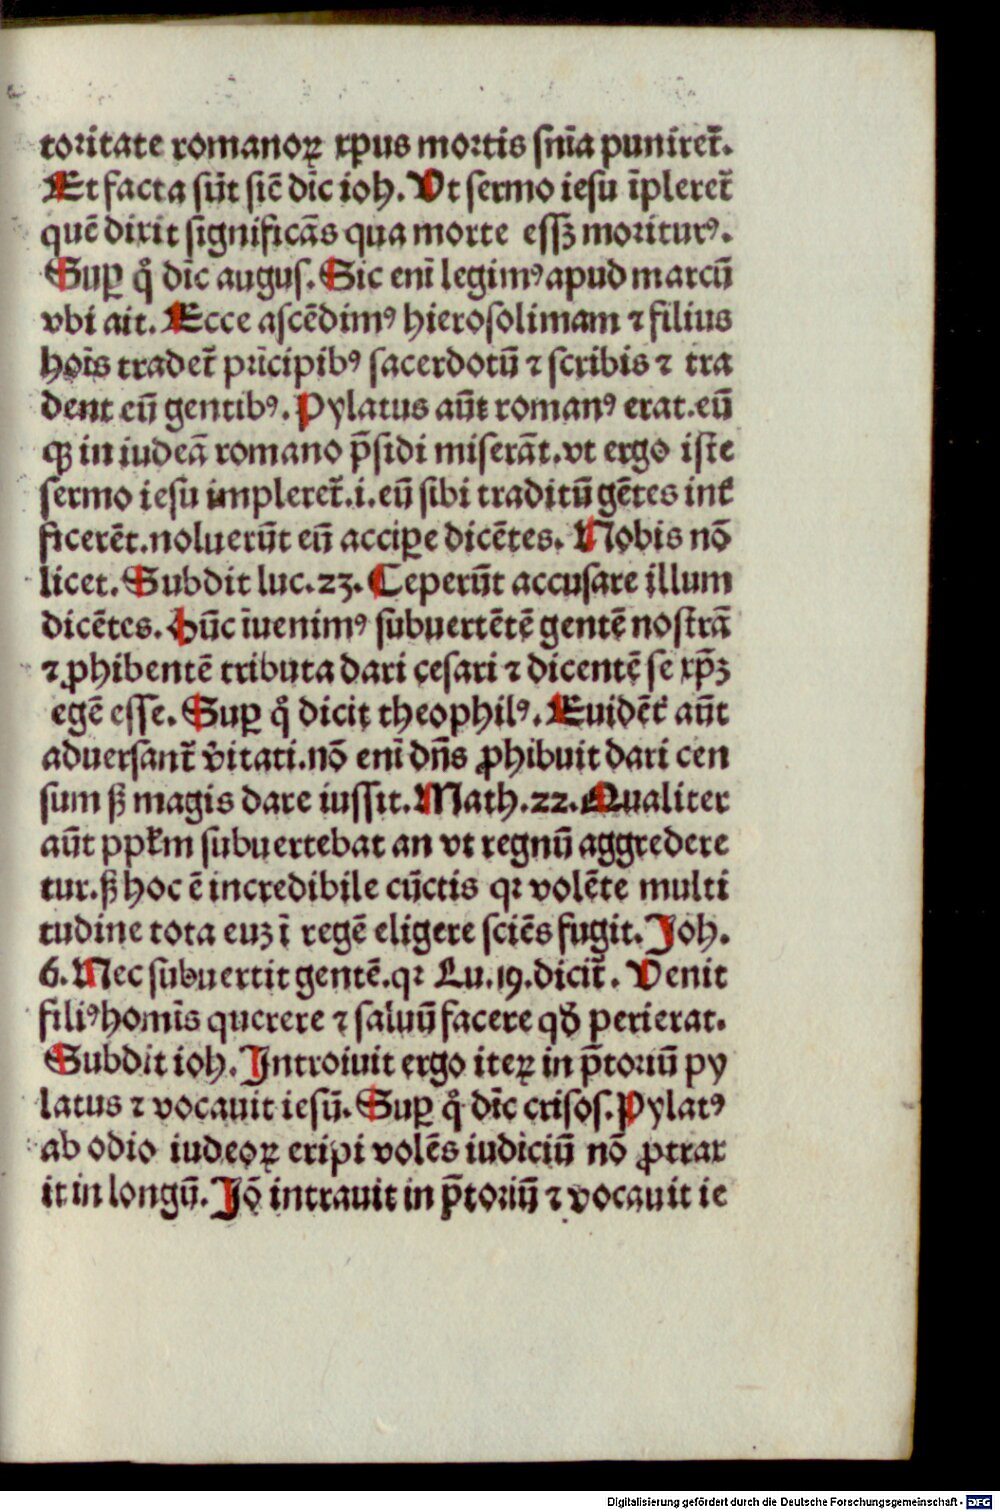 toritate romanoꝝ xp̄us mortis sn̄ia puniret᷑.
Et facta sūt sic̄ dic̄ ioh. Vt sermo iesu īpleret᷑
quē dixit significās qua morte essꝫ moriturꝰ.
Suꝑ qͦ dic̄ augus. Sic enī legimꝰ apud marcū
vbi ait. Ecce ascēdimꝰ hierosolimam ⁊ filius
hoīs tradet᷑ prīcipibꝰ sacerdotū ⁊ scribis ⁊ tra
dent eū gentibꝰ. Pylatus aūt romanꝰ erat. eū
qꝫ in iudeā romano p̄sidi miserāt. vt ergo iste
sermo iesu impleret᷑. i. eū sibi traditū gētes int᷑
ficerēt. noluerūt eū acciꝑe dicētes. Nobis nō
licet. Subdit luc. 23. Ceperūt accusare illum
dicētes. Hūc īuenimꝰ subuertētē gentē nostrā
⁊ ꝓhibentē tributa dari cesari ⁊ dicentē se xp̄ꝫ
egē esse. Suꝑ qͦ dicit theophilꝰ. Euidēt᷑ aūt
aduersant᷑ v̄itati. nō enī dn̄s ꝓhibuit dari cen
sum sꝫ magis dare iussit. Math. 22. Qualiter
aūt ppl̄m subuertebat an vt regnū aggredere
tur. sꝫ hoc ē incredibile cūctis qꝛ volēte multi
tudine tota euꝫ ī regē eligere sciēs fugit. Joh.
6. Nec subuertit gentē. qꝛ Lu. 19. dicit᷑. Venit
filiꝰ homīs querere ⁊ saluū facere qđ perierat.
Subdit ioh. Introiuit ergo iteꝝ in p̄toriū py
latus ⁊ vocauit iesū. Suꝑ qͦ dic̄ crisos. Pylatꝰ
ab odio iudeoꝝ eripi volēs iudiciū nō ꝓtrax
it in longū. Jō intrauit in p̄toriū ⁊ vocauit ie
Digitalisierung gefördert durch die Deutsche Forschungsgemeinschaft - DFG